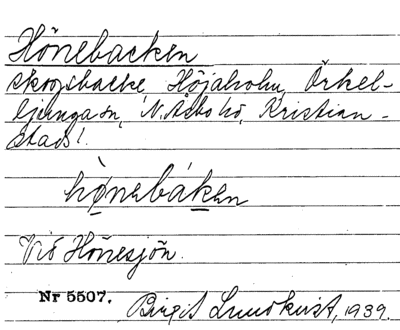 Hönebacken
skogsbacke, Höjaholm, Örkel-
ljunga sn, N. Åsbo hd, Kristian-
stads l.
hø̀nebáken
Vid Hönesjön.
Nr 5507. Birgit Lundkvist, 1939.